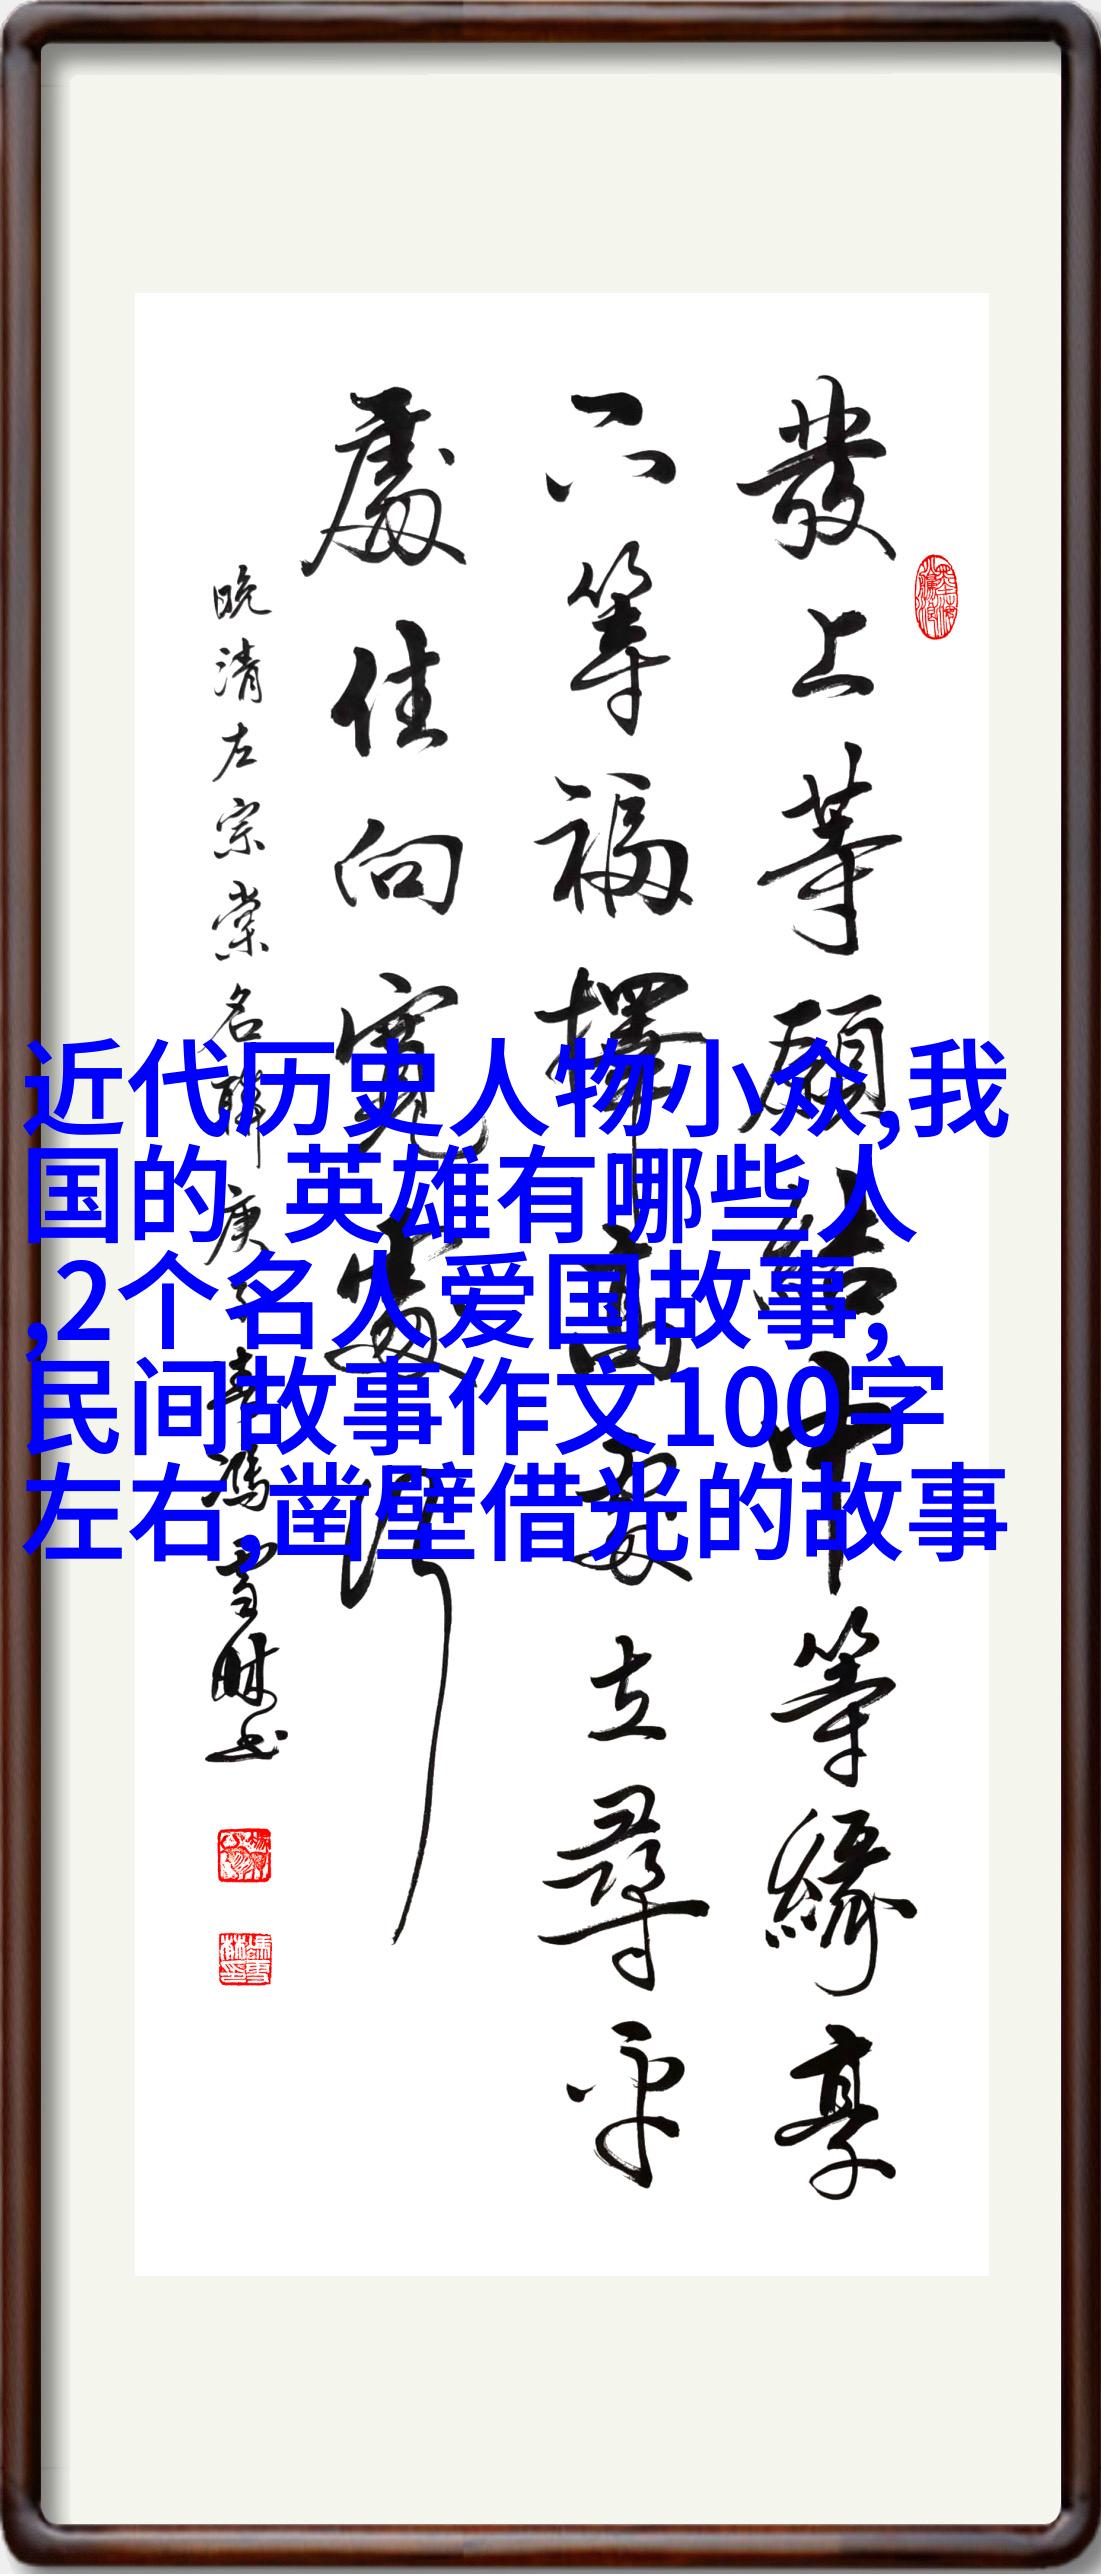 發上等願結中等緣享
下等福擇高處立尋平
處住向寬處行
晚清左宗棠名聯庚子春馮雪林書
近代历史人物小众,我
国的 英雄有哪些人
,2个名人爱国故事,
民间故事作文100字
左右,凿壁借光的故事